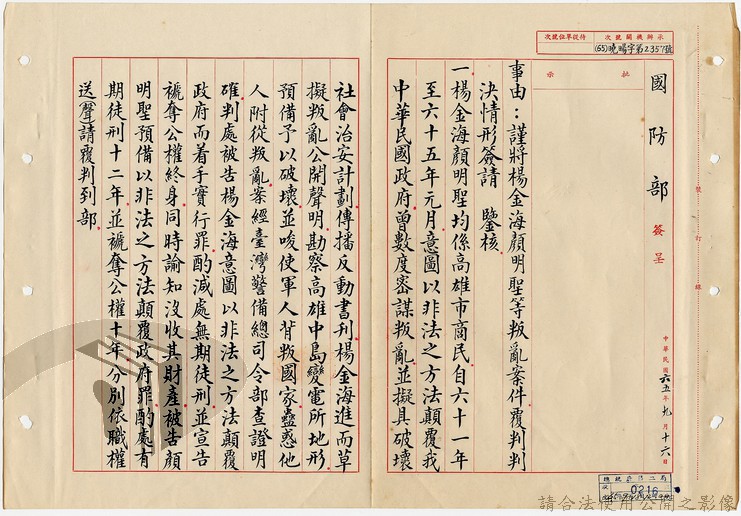 承辦機關號次
侍從單位號次
(65)曉暘字第2357號
批
示
國防部
簽呈
中華民國六五年九月十六日
號
訂
線
事由：謹將楊金海顏明聖等叛亂案件覆判判
決情形簽請　鑒核
一楊金海顏明聖均係高雄市商民自六十一年
至六十五年元月意圖以非法之方法顛覆我
中華民國政府曾數度密謀叛亂並擬具破壞
社會治安計劃傳播反動書刊楊金海進而草
擬叛亂公開聲明勘察高雄中島變電所地形
預備予以破壞並唆使軍人背叛國家蠱惑他
人附從叛亂案經臺灣警備總司令部查證明
確判處被告楊金海意圖以非法之方法顛覆
政府而着手實行罪酌減處無期徒刑並宣告
褫奪公權終身同時諭知沒收其財產被告顏
明聖預備以非法之方法顛覆政府罪酌處有
期徒刑十二年並褫奪公權十年分別依職權
送(聲)請覆判到部
總統府第二局
0216
請合法使用公開之影像